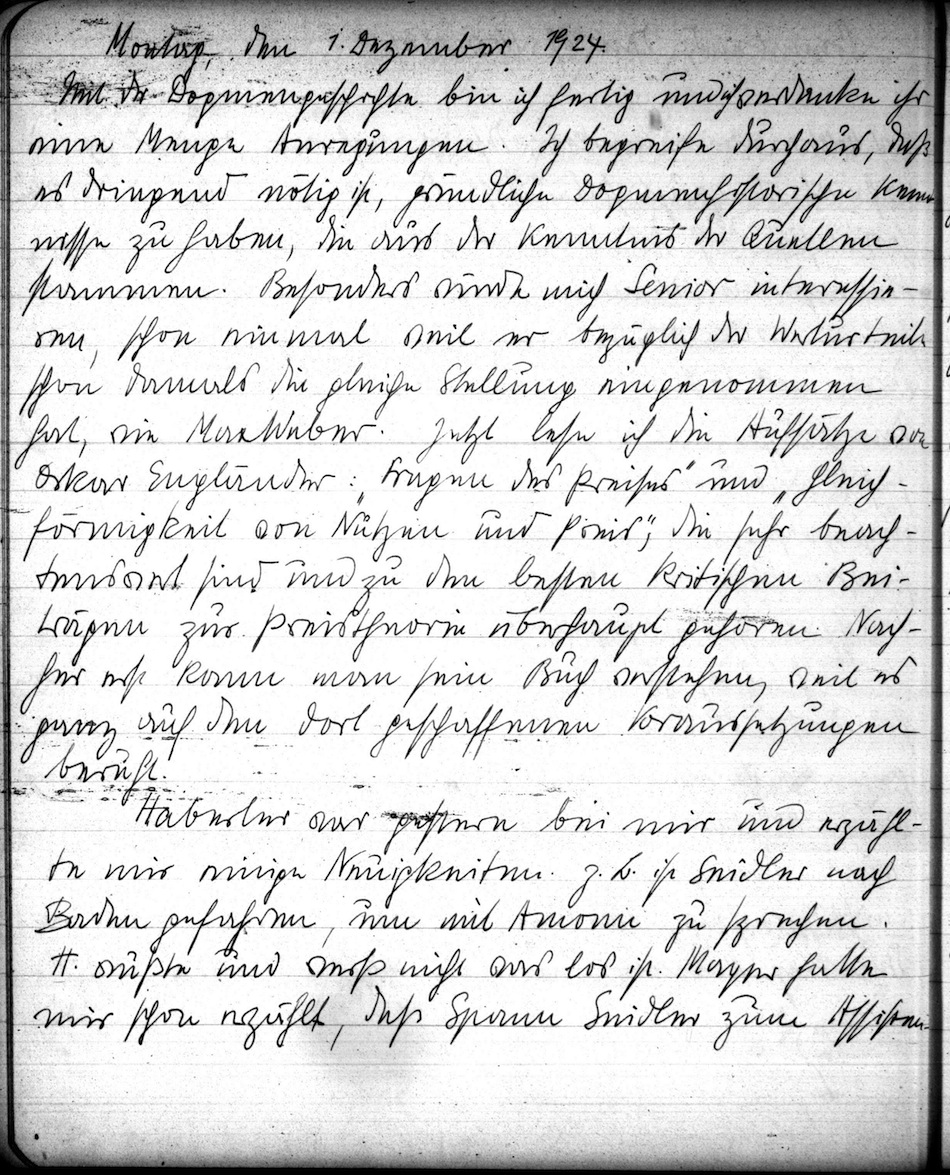 Montag, den 1. Dezember 1924.
Mit der Dogmengeschichte bin ich fertig und ich verdanke ihr
eine Menge Anregungen. Ich begreife durchaus, daß
es dringend nötig ist, gründliche dogmenhistorische Kennt-
nisse zu haben, die aus der Kenntnis der Quellen
stammen. Besonders würde mich Senior interessie-
ren, schon einmal weil er bezüglich der Werturteile
schon damals die gleiche Stellung eingenommen
hat, wie Max Weber. Jetzt lese ich die Aufsätze von
Oskar Engländer: „Fragen des Preises" und „Gleich-
förmigkeit von Nutzen und Preis", die sehr beach-
tenswert sind und zu den besten kritischen Bei-
trägen zur Preistheorie überhaupt gehören. Nach-
her erst kann man sein Buch verstehen, weil es
ganz auf den dort geschaffenen Voraussetzungen
beruht.
Haberler war gestern bei mir und erzähl-
te mir einige Neuigkeiten. z. B. ist Seidler nach
Baden gefahren, um mit Amonn zu sprechen.
H. wußte und weiß nicht was los ist. Mayer hatte
mir schon erzählt, daß Spann Seidler zum Assisten-